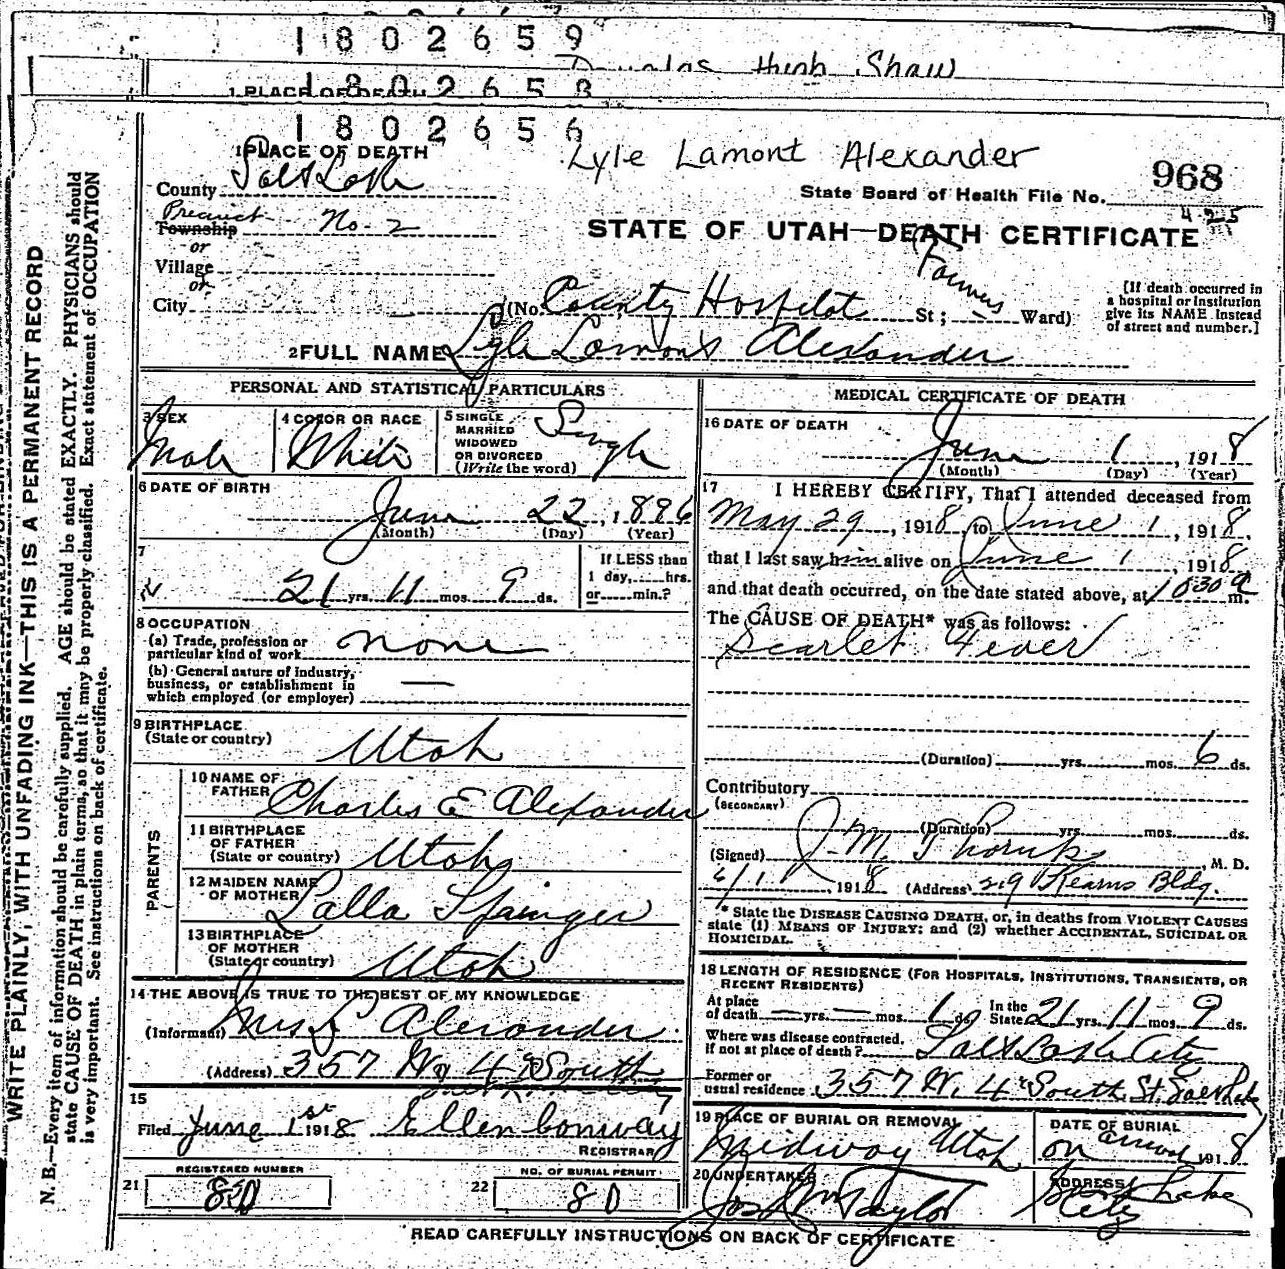 1802659
Douglas Hugh Shaw
1 PLACE OF DEATH
1802658
1802656
Lyle Lamont Alexander
1 PLACE OF DEATH
County Salt Lake
State Board of Health File No. 968
Precinct No. 2
Township
4-25
or
STATE OF UTAH—DEATH CERTIFICATE
Village
or
City
(No. County Hospital St; Ward)
[If death occurred in a hospital or institution give its NAME instead of street and number.]
2 FULL NAME Lyle Lamont Alexander
PERSONAL AND STATISTICAL PARTICULARS
3 SEX Male
4 COLOR OR RACE White
5 SINGLE MARRIED WIDOWED OR DIVORCED (Write the word) Single
6 DATE OF BIRTH
June 22, 1896
(Month) (Day) (Year)
7
21 yrs. 11 mos. 9 ds.
If LESS than 1 day, hrs. or min.?
8 OCCUPATION
(a) Trade, profession or particular kind of work none
(b) General nature of industry, business, or establishment in which employed (or employer) —
9 BIRTHPLACE
(State or country) Utah
PARENTS
10 NAME OF FATHER Charles E Alexander
11 BIRTHPLACE OF FATHER (State or country) Utah
12 MAIDEN NAME OF MOTHER Lalla
13 BIRTHPLACE OF MOTHER (State or country) Utah
14 THE ABOVE IS TRUE TO THE BEST OF MY KNOWLEDGE
(Informant) Mrs L Alexander
(Address) 357 W 4 South
15
Filed June 1st 1918 Ellen Conway
REGISTRAR
REGISTERED NUMBER
21 80
NO. OF BURIAL PERMIT
22 80
MEDICAL CERTIFICATE OF DEATH
16 DATE OF DEATH
June 1, 1918
(Month) (Day) (Year)
17 I HEREBY CERTIFY, That I attended deceased from
May 29, 1918, to June 1, 1918,
that I last saw him alive on June 1, 1918
and that death occurred, on the date stated above, at 1030 a m.
The CAUSE OF DEATH* was as follows:
Scarlet Fever
(Duration) yrs. mos. 6 ds.
Contributory
(SECONDARY)
(Duration) yrs. mos. ds.
(Signed) J. M. M. D.
6/1, 1918 (Address) 219 Kearns Bldg.
* State the DISEASE CAUSING DEATH, or, in deaths from VIOLENT CAUSES
state (1) MEANS OF INJURY; and (2) whether ACCIDENTAL, SUICIDAL OR
HOMICIDAL.
18 LENGTH OF RESIDENCE (FOR HOSPITALS, INSTITUTIONS, TRANSIENTS, OR
RECENT RESIDENTS)
At place of death — yrs. — mos. 1 ds. In the State 21 yrs. 11 mos. 9 ds.
Where was disease contracted, if not at place of death? Salt Lake City
Former or usual residence 357 W. 4 South St. Salt Lake
19 PLACE OF BURIAL OR REMOVAL Midway Utah
DATE OF BURIAL on arrival 1918
20 UNDERTAKER Jos Wm Taylor
ADDRESS Salt Lake City
READ CAREFULLY INSTRUCTIONS ON BACK OF CERTIFICATE
WRITE PLAINLY, WITH UNFADING INK—THIS IS A PERMANENT RECORD
N. B.—Every item of information should be carefully supplied. AGE should be stated EXACTLY. PHYSICIANS should
state CAUSE OF DEATH in plain terms, so that it may be properly classified. Exact statement of OCCUPATION
is very important. See instructions on back of certificate.